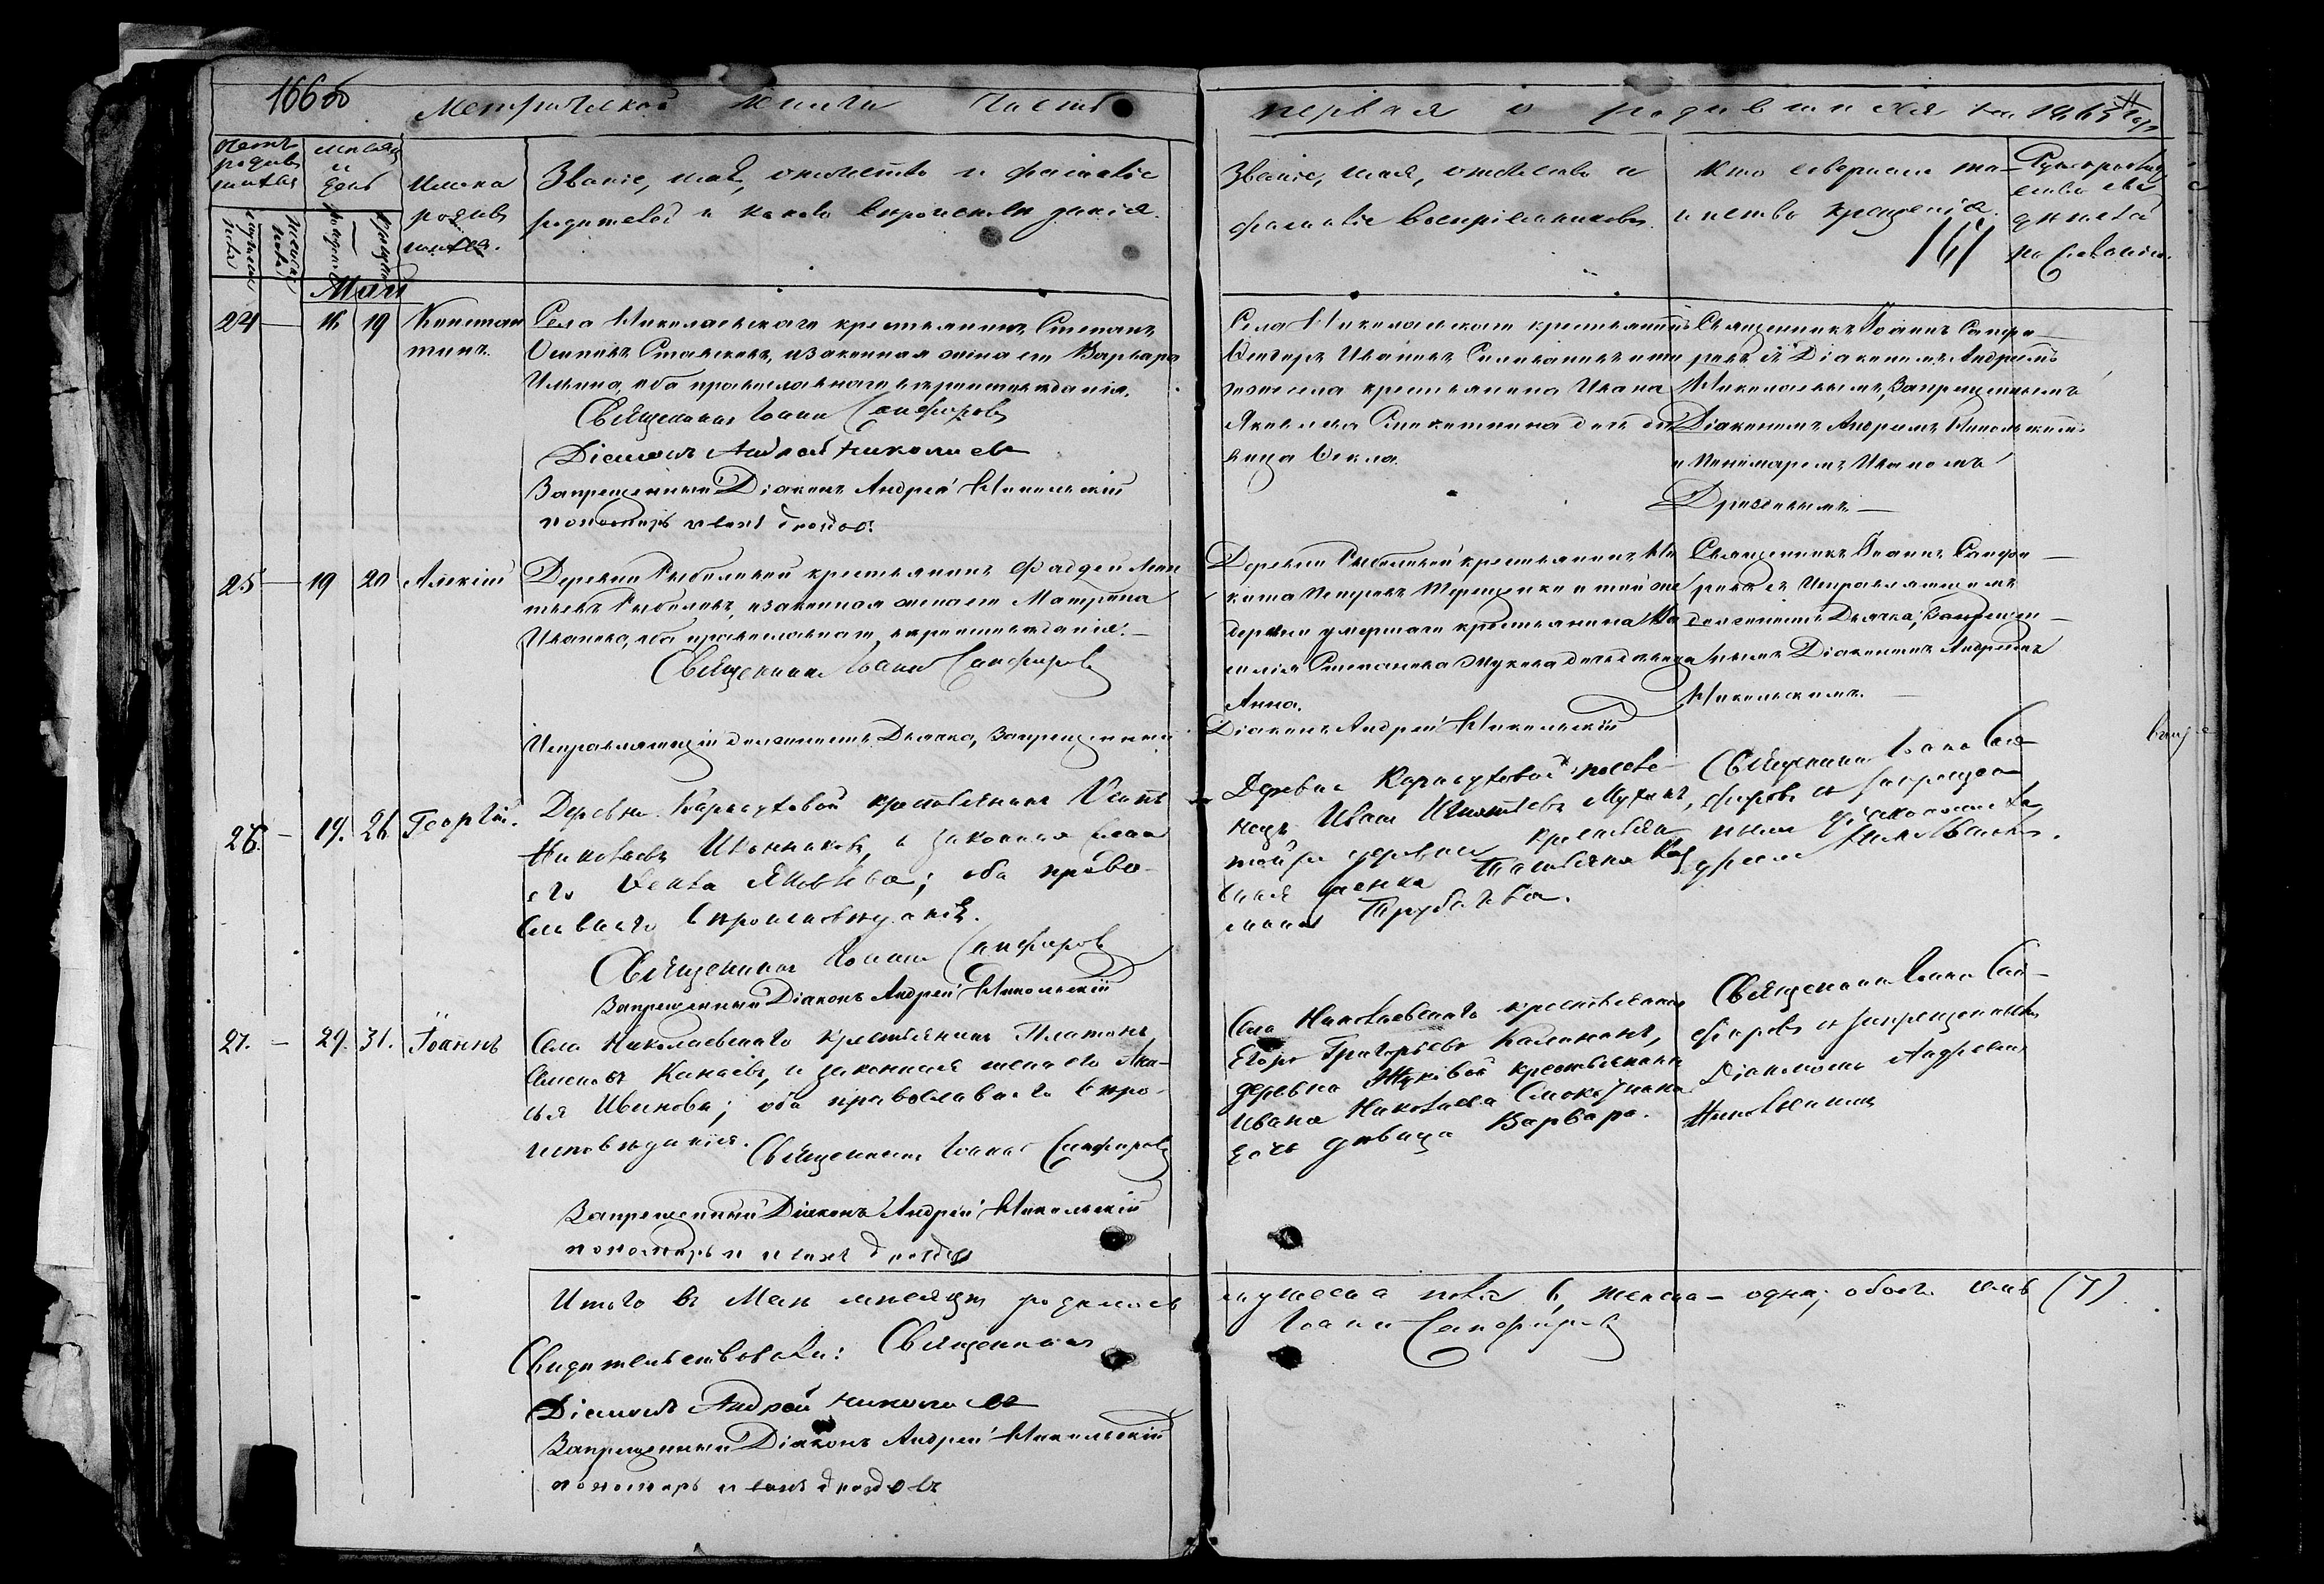 166об
Метрической книги часть
первая о родившихся на 1865й годъ
Счетъ родив шихся
мужеска пола
женска пола
Месяцъ и день
рожденія
крещенія
Имена родив шихся.
Званіе, имя, отчество и фамилія
родителей и какого вероисповеданія.
Званіе, имя, отчество и
фамилія воспріемниковъ.
Кто совершалъ та-
инство крещенія.
по желанію.
161
Май
24 — 16 19
Констан
тинъ.
Села Николаевскаго крестьянинъ Степанъ
и законная жена его Варвара
Ильина, оба православнаго вероисповеданія.
Священникъ Іоаннъ Сапфировъ
Діаконъ Андрей Николаевъ
Запрещенный Діаконъ Андрей Никольскій
пономарь Иванъ Дроздовъ
Села Николаевскаго крестьянинъ
Ивановъ и того
же села крестьянина Ивана
Яковлева дочь де
вица Фекла.
Священникъ Іоаннъ Сапфи
ровъ съ Діакономъ Андреемъ
Николаевымъ, Запрещеннымъ
Діакономъ Андреемъ Никольскимъ
и Пономаремъ Иваномъ
Дроздовымъ —
25 — 19 20 Алексій
Деревни крестьянинъ Фаддей
и законная жена его Матрона
Иванова, оба православнаго вероисповеданія. —
Священникъ Іоаннъ Сапфировъ
Исправляющій должность Дьячка, Запрещенный
Деревни крестьянинъ Ни
кита Петровъ Терещенко и той же
деревни умершаго крестьянина
Степанова Жукова дочь девица
Анна.
Діаконъ Андрей Никольскій
Священникъ Іоаннъ Сапфи —
ровъ съ Исправляющимъ
должность Дьячка, Запрещен —
нымъ Діакономъ Андреемъ
Никольскимъ. —
26. — 19. 26 Георгій.
Деревни крестьянинъ
Николаевъ и законная жена
его Яковлева; оба право-
славнаго вероисповеданія.
Священникъ Іоаннъ Сапфировъ
Запрещенный Діаконъ Андрей Никольскій
Деревни крестья-
нинъ Иванъ Игнатьевъ
той же деревни крестьян
женка Татьяна
Священникъ Іоаннъ Сап-
фировъ съ запрещен
нымъ діакономъ Ан
дреемъ Никольскимъ.
27. — 29. 31. Іоаннъ
Села Николаевскаго крестьянинъ Платонъ
Семеновъ Канаевъ, и законная жена его
Иванова; оба православнаго веро-
исповеданія. Священникъ Іоаннъ Сапфировъ
Запрещенный Діаконъ Андрей Никольскій
пономарь Иванъ Дроздовъ
Села Николаевскаго крестьянинъ
Егоръ Григорьевъ
деревни Жуковой крестьянина
Ивана Николаева
дочь девица Варвара.
Священникъ Іоаннъ Сап-
фировъ съ запрещеннымъ
Діакономъ Андреемъ
Никольскимъ
Итого въ Мае месяце родилось
мужеска пола 6, женска — одна; обоего семь (7)
Свидетельствовали: Священникъ
Іоаннъ Сапфировъ
Діаконъ Андрей Николаевъ
Запрещенный Діаконъ Андрей Никольскій
пономарь Иванъ Дроздовъ